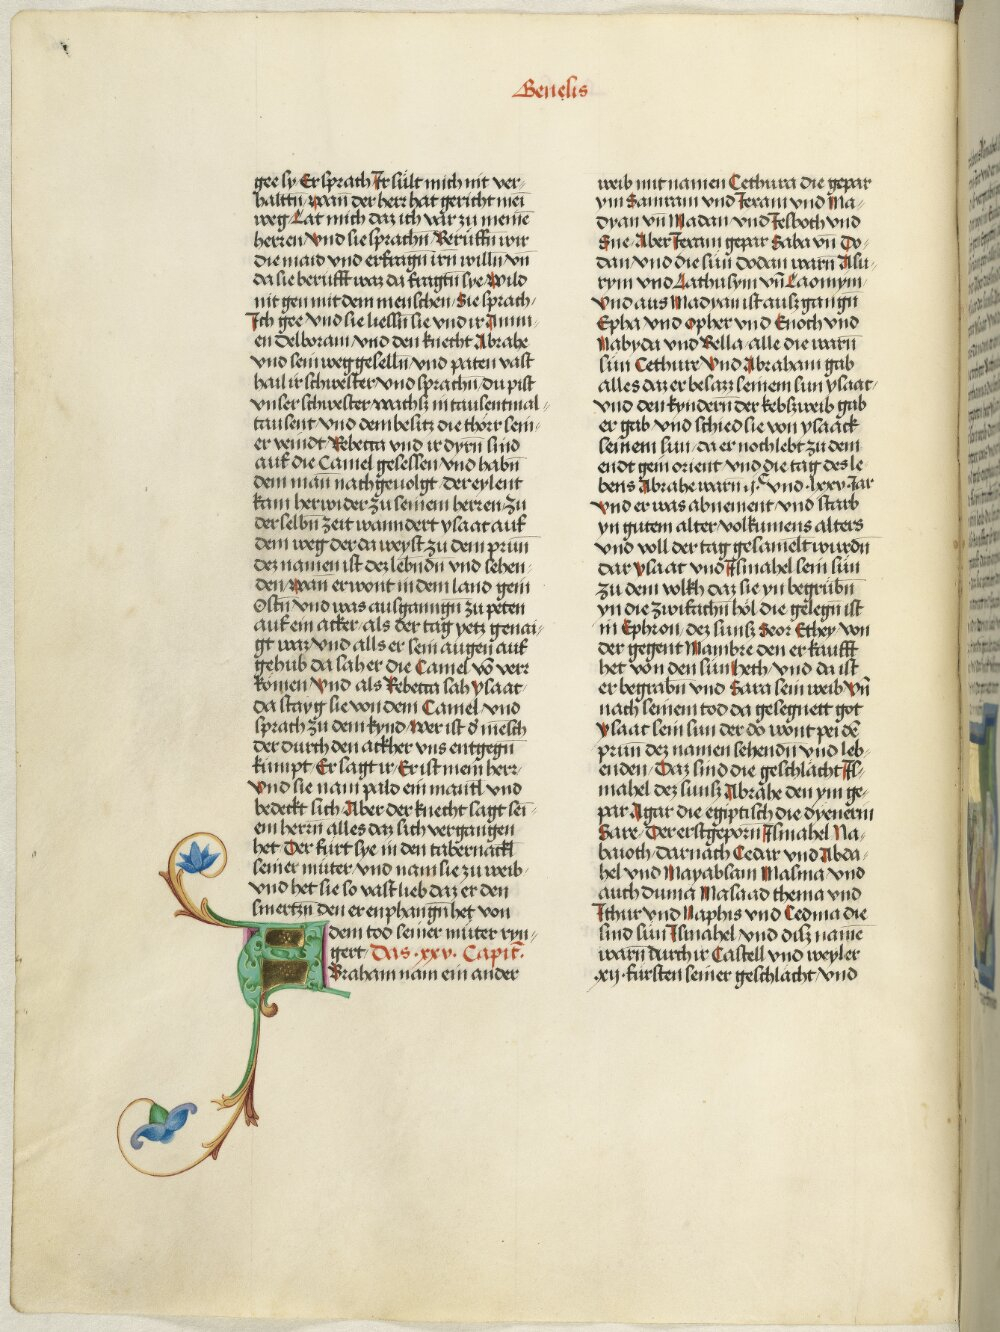 Genesis
gee sy Er sprach Ir sült mich nit ver-
halttn̄ wan der herr hat gericht mei
weg Lat mich daz ich var zu meinē
herren Vnd sie sprachn̄ Berüffn̄ wir
die maid vnd erfragn irn willn̄ vn̄
da sie berufft war da fragtn̄ sye Wild
nit gen mit dem menschen Sie sprach
Ich gee Vnd sie liessn̄ sie vnd ir Amm-
en Delboram vnd den knecht Abrahe
vnd sein weggeselln̄ vnd paten vast
hail ir schwester vnd sprachn̄ du pist
vnser schwester wachsz in tausentmal-
tausent vnd dein besitz die thörr sein-
er veindt Rebecca vnd ir dyrn̄ sind
auf die Camel gesessen vnd habn̄
dem man nachgeuolgt der eylent
kam herwider zu seinem herren Zu
der selbn̄ zeit wanndert ysaac auf
dem weg der da weyst zu dem prun̄
dez namen ist dez lebndn̄ vnd sehen-
den wan er wont in dem land gein
Ostn̄ vnd was ausganngn̄ zu peten
auf ein acker als der tag yetz genai-
gt war vnd alls er sein augen auf
gehub da sah er die Camel vō verr
komen Vnd als Rebecca sah ysaac
da stayg sie von dem Camel vnd
sprach zu dem kynd Wer ist d mēsch
der durch den ackher vns entgegn
kumpt Er sagt ir Er ist mein herr
Vnd sie nam pald ein mantl vnd
bedeckt sich Aber der knecht sagt sei-
em herrn̄ alles daz sich vergangen
het Der furt sye in den tabernackl
seiner müter vnd nam sie zu weib
vnd het sie so vast lieb daz er den
smertzn̄ den er enphangn̄ het von
dem tod seiner müter ryn-
gert Das .xxv. Capit̄.
ABraham nam ein ander
weib mit namen Cethura die gepar
ym Samram vnd Jexam vnd Ma-
dyan vn̄ Madan vnd Jesboch vnd
Sue Aber Jexam gepar Saba vn̄ Do-
dan vnd die sün dodan warn Assu-
rym vnd Lathusym vn̄ Laomym
Vnd aus Madyan ist ausz gangn̄
Epha vnd opher vnd Enoch vnd
Nabyda vnd Bella alle die warn̄
sün Cethure Vnd Abraham gab
alles daz er besasz seinem sun ysaac
vnd den kyndern der kebszweib gab
er gab vnd schied sie von ysaack
seinem sun da er noch lebt zu dem
endt gein orient vnd die tag des le-
bens Abrahe warn .j.c vnd .lxxv. Jar
Vnd er was abnement vnd starb
yn gutem alter volkumens alters
vnd voll der tag gesamelt wurdn̄
dar ysaac vnd Ismahel sein sün
zu dem volkh daz sie yn begrübn̄
yn die zwifachn̄ höl die gelegn̄ ist
in Ephron dez sunsz Seor Ethey von
der gegent Mambre den er kaufft
het von den sün heth vnd da ist
er begrabn̄ vnd Sara sein weib Vn̄
nach seinem tod da gesegnett got
ysaac sein sun der do wont pei dē
prun̄ dez namen sehendn̄ vnd leb-
enden Daz sind die geschlächt Is-
mahel dez sunsz Abrahe den ym ge-
par Agar die egiptisch die dyenerin
Sare Der erstgeporn̄ Ismahel Na-
baioth darnach Cedar vnd Abda-
hel vnd Mayabsam Masma vnd
auch duma Masa ad thema vnd
Ithur vnd Naphis vnd Cedma die
sind sün Ismahel vnd disz name
warn̄ durch ir Castell vnd weyler
.xij. fürsten seiner geschlächt vnd